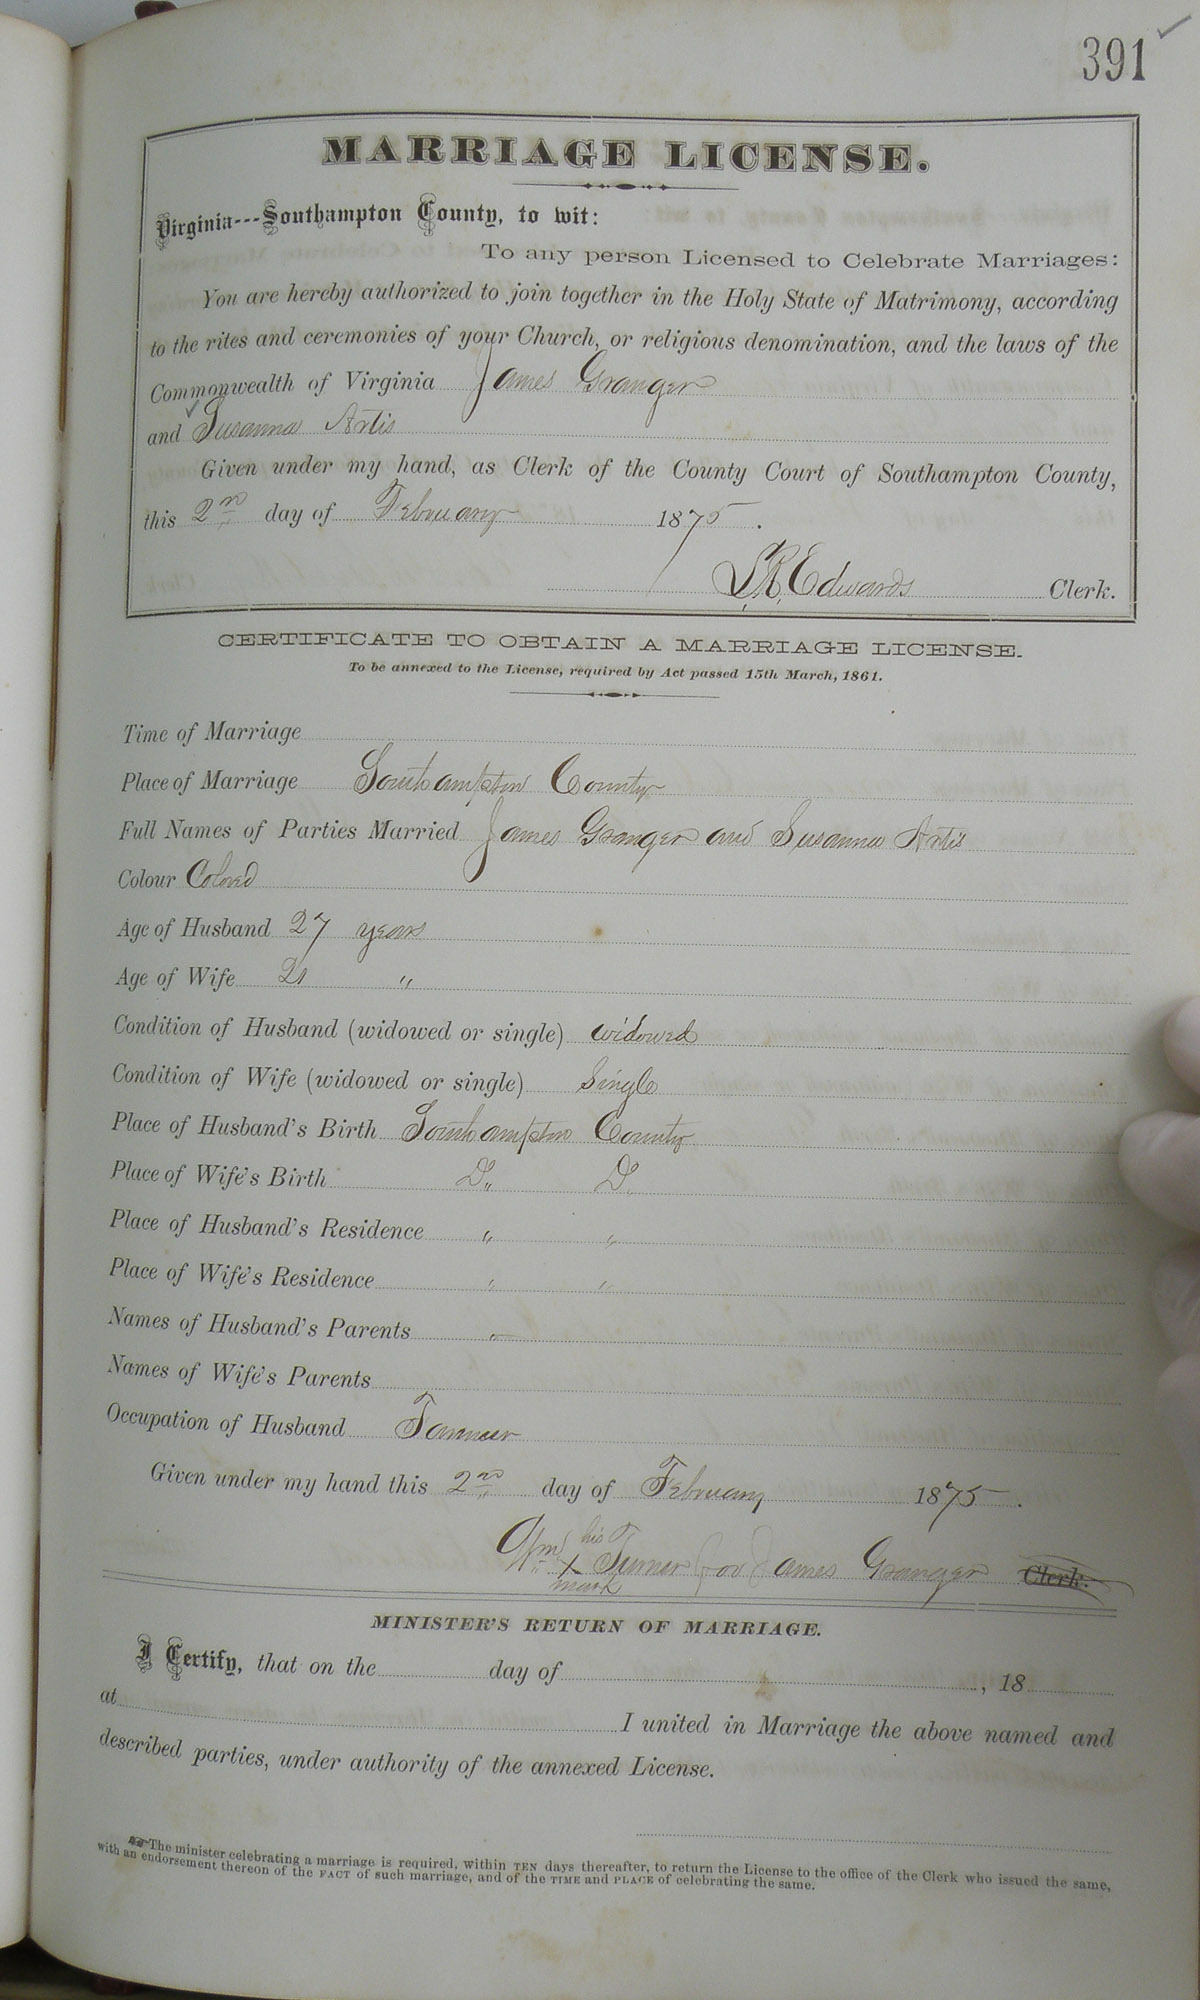 391
MARRIAGE LICENSE.
Virginia---Southampton County, to wit:
To any person Licensed to Celebrate Marriages:
You are hereby authorized to join together in the Holy State of Matrimony, according
to the rites and ceremonies of your Church, or religious denomination, and the laws of the
Commonwealth of Virginia James Granger
and Susanna Artis
Given under my hand, as Clerk of the County Court of Southampton County,
this 2nd day of February 1875.
L.R. Edwards Clerk.
CERTIFICATE TO OBTAIN A MARRIAGE LICENSE.
To be annexed to the License, required by Act passed 15th March, 1861.
Time of Marriage
Place of Marriage Southampton County
Full Names of Parties Married James Granger and Susanna Artis
Colour Colored
Age of Husband 27 years
Age of Wife 21 "
Condition of Husband (widowed or single) widowed
Condition of Wife (widowed or single) Single
Place of Husband's Birth Southampton County
Place of Wife's Birth Do Do
Place of Husband's Residence " "
Place of Wife's Residence " "
Names of Husband's Parents "
Names of Wife's Parents
Occupation of Husband Farmer
Given under my hand this 2nd day of February 1875.
Wm his X mark Turner for James Granger Clerk.
MINISTER'S RETURN OF MARRIAGE.
I Certify, that on the day of , 18
at I united in Marriage the above named and
described parties, under authority of the annexed License.
The minister celebrating a marriage is required, within TEN days thereafter, to return the License to the office of the Clerk who issued the same,
with an endorsement thereon of the FACT of such marriage, and of the TIME and PLACE of celebrating the same.